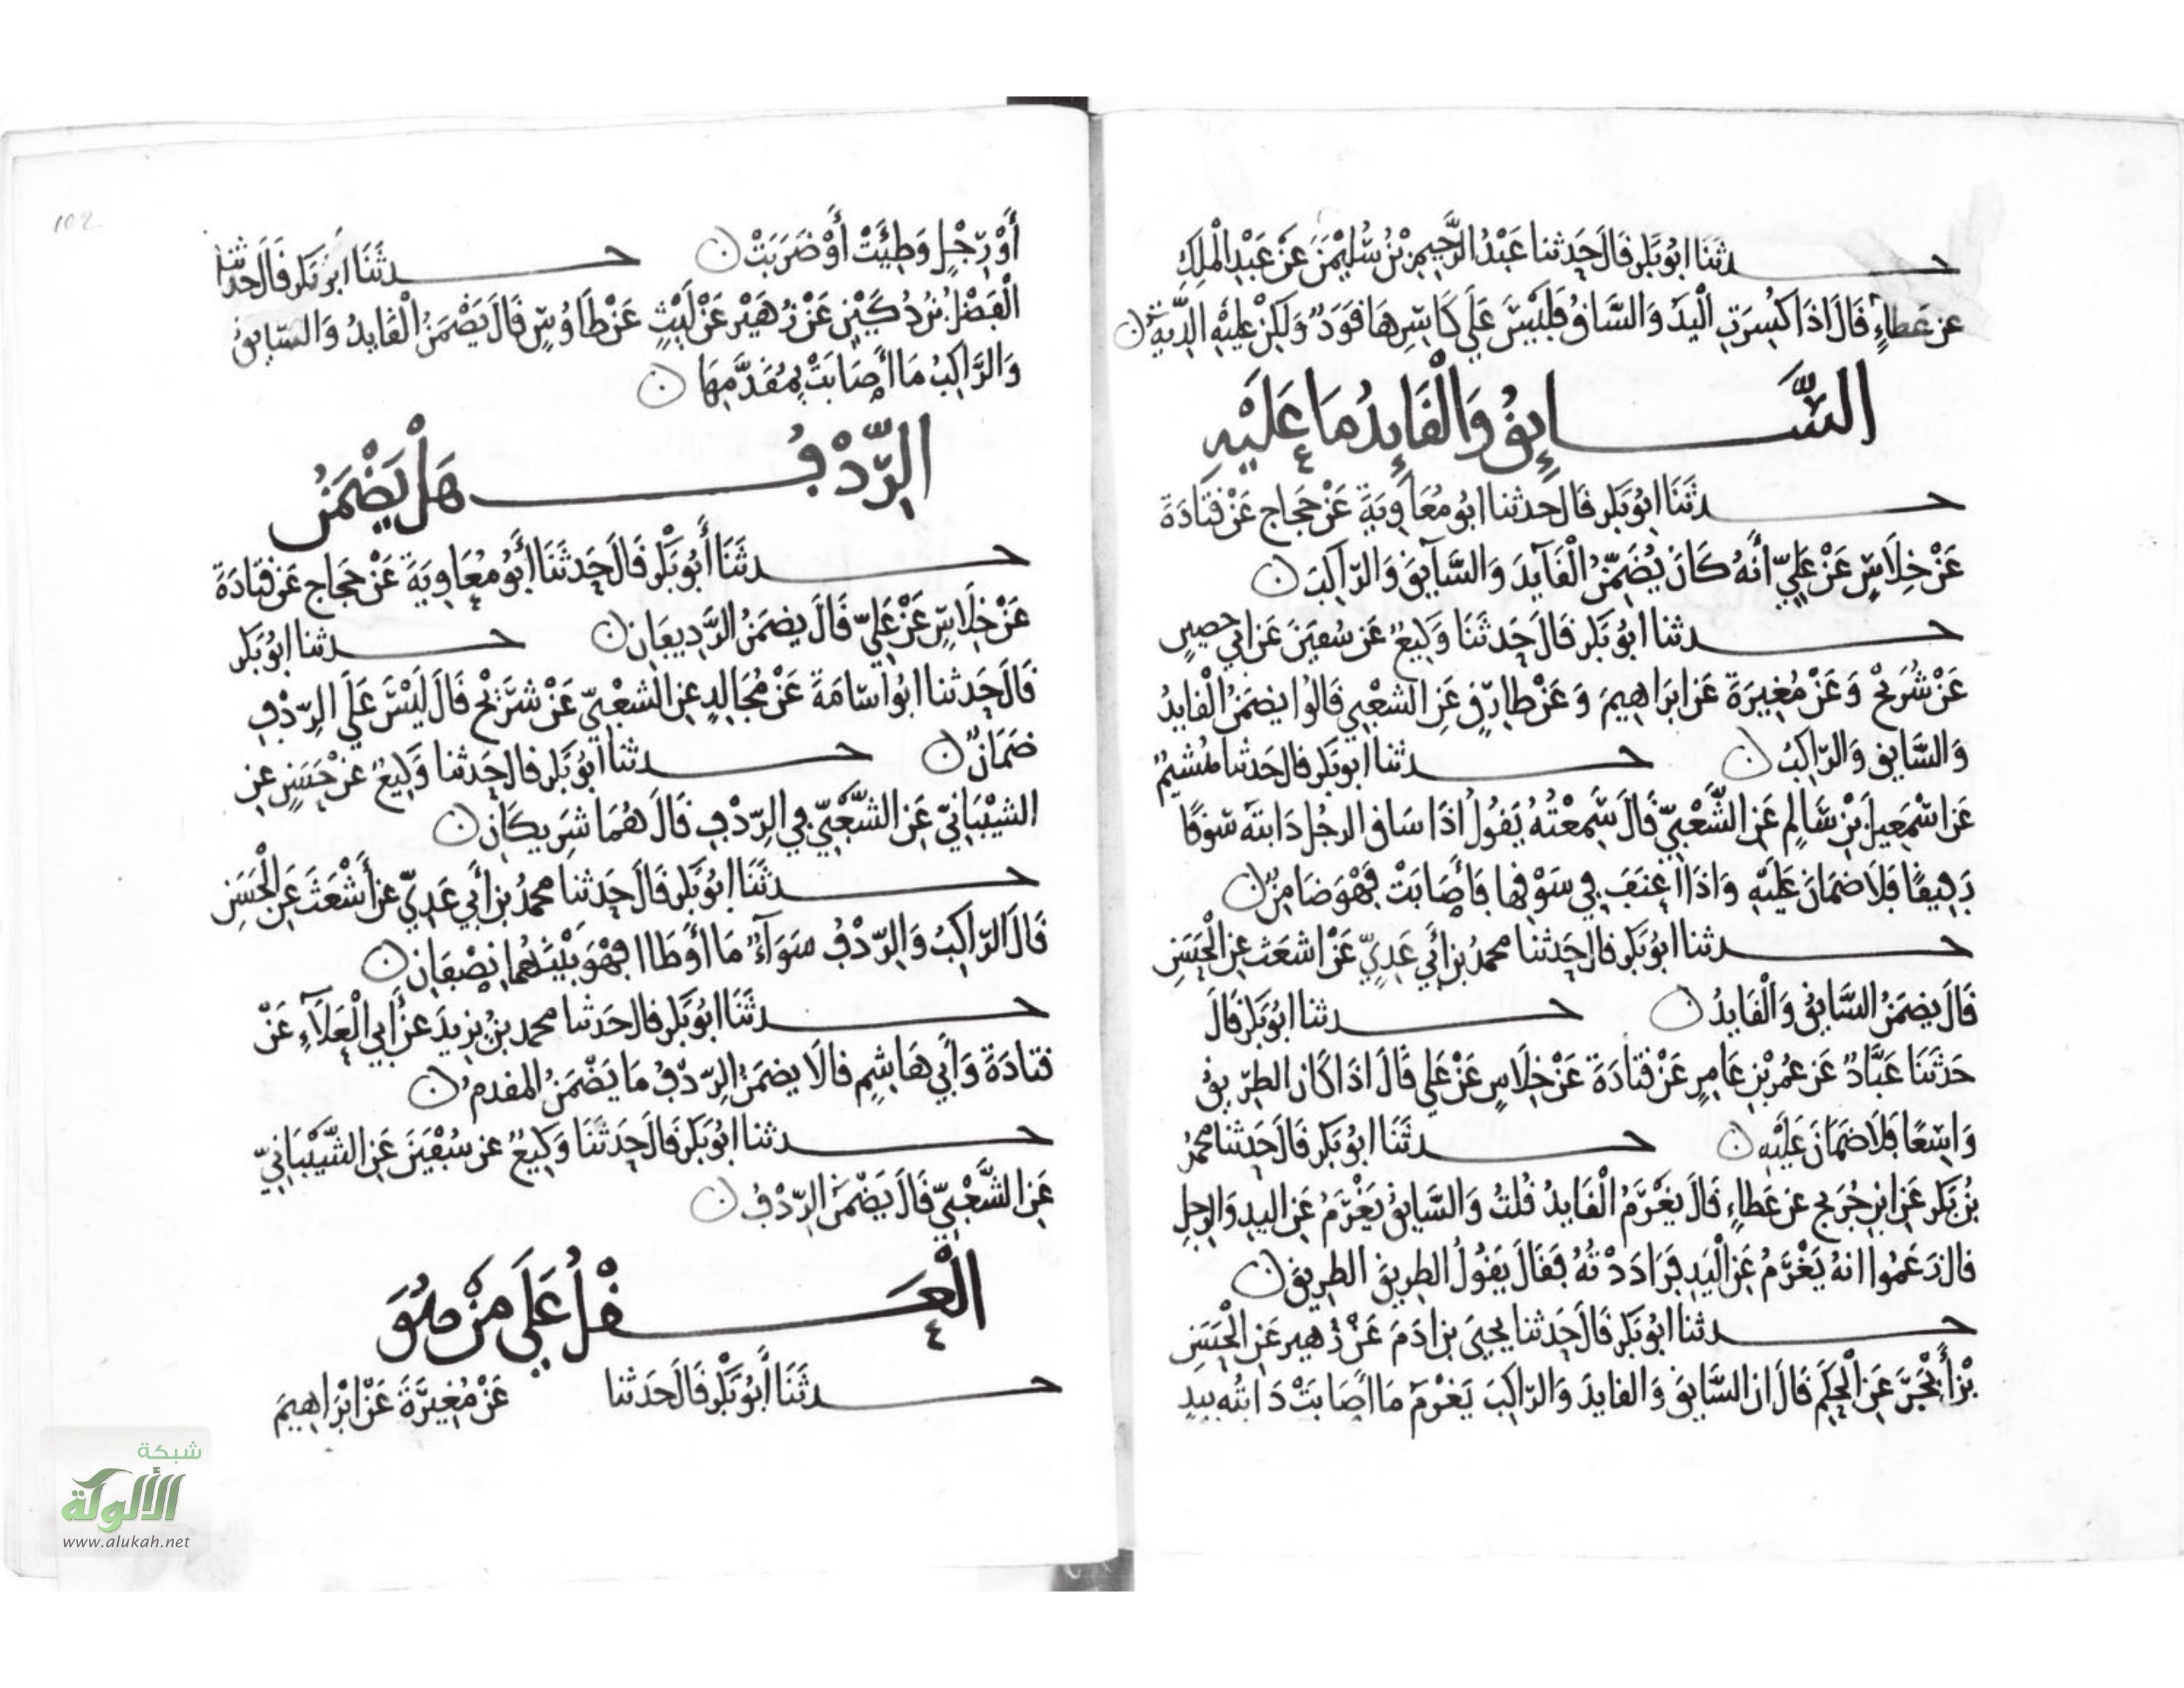 حدثنا ابو بكر قال حدثنا عبد الرحيم بن سليمن عن عبد الملك
عن عطاء قال اذا كسرت اليد والساق فليس على كاسرها قود ولكن عليه الدية
السايق والقايد ما عليه
حدثنا ابو بكر قال حدثنا ابو معاوية عن حجاج عن قتادة
عن خلاس عن علي أنه كان يضمن القايد والسايق والراكب
حدثنا ابو بكر قال حدثنا وكيع عن سفين عن ابي حصين
عن شريح وعن مغيرة عن ابراهيم وعن طارق عن الشعبي قالوا يضمن القايد
والسايق والراكب حدثنا ابو بكر قال حدثنا هشيم
عن اسمعيل بن سالم عن الشعبي قال سمعته يقول اذا ساق الرجل دابته سوقا
رفيقا فلا ضمان عليه واذا اعنف في سوقها فأصابت فهو ضامن
حدثنا ابو بكر قال حدثنا محمد بن أبي عدي عن اشعث عن الحسن
قال يضمن السايق والقايد حدثنا ابو بكر قال
حدثنا عباد عن عمر بن عامر عن قتادة عن خلاس عن علي قال اذا كان الطريق
واسعا فلا ضمان عليه حدثنا ابو بكر قال حدثنا محمد
بن بكر عن ابن جريج عن عطاء قال يغرم القايد قلت والسايق يغرم عن اليد والرجل
قال زعموا انه يغرم عن اليد فراددته فقال يقول الطريق الطريق
حدثنا ابو بكر قال حدثنا يحيى بن ادم عن زهير عن الحسن
بن أبجر عن الحكم قال ان السايق والقايد والراكب يغرم ما اصابت دابته بيد
102
أو رجل وطئت أو ضربت حدثنا ابو بكر قال حدثنا
الفضل بن دكين عن زهير عن ليث عن طاوس قال يضمن القايد والسايق
والراكب ما اصابت بمقدمها
الردف هل يضمن
حدثنا أبو بكر قال حدثنا أبو معاوية عن حجاج عن قتادة
عن خلاس عن علي قال يضمن الرديفان حدثنا ابو بكر
قال حدثنا ابو اسامة عن مجالد عن الشعبي عن شريح قال ليس على الردف
ضمان حدثنا ابو بكر قال حدثنا وكيع عن حسن عن
الشيباني عن الشعبي في الردف قال هما شريكان
حدثنا ابو بكر قال حدثنا محمد بن أبي عدي عن أشعث عن الحسن
قال الراكب والردف سواء ما اوطاا فهو بينهما نصفان
حدثنا ابو بكر قال حدثنا محمد بن يزيد عن أبي العلاء عن
قتادة وأبي هاشم قالا يضمن الردف ما يضمن المقدم
حدثنا ابو بكر قال حدثنا وكيع عن سفين عن الشيباني
عن الشعبي قال يضمن الردف
العقل على من هو
حدثنا أبو بكر قال حدثنا عن مغيرة عن ابراهيم
شبكة
الألوكة
www.alukah.net